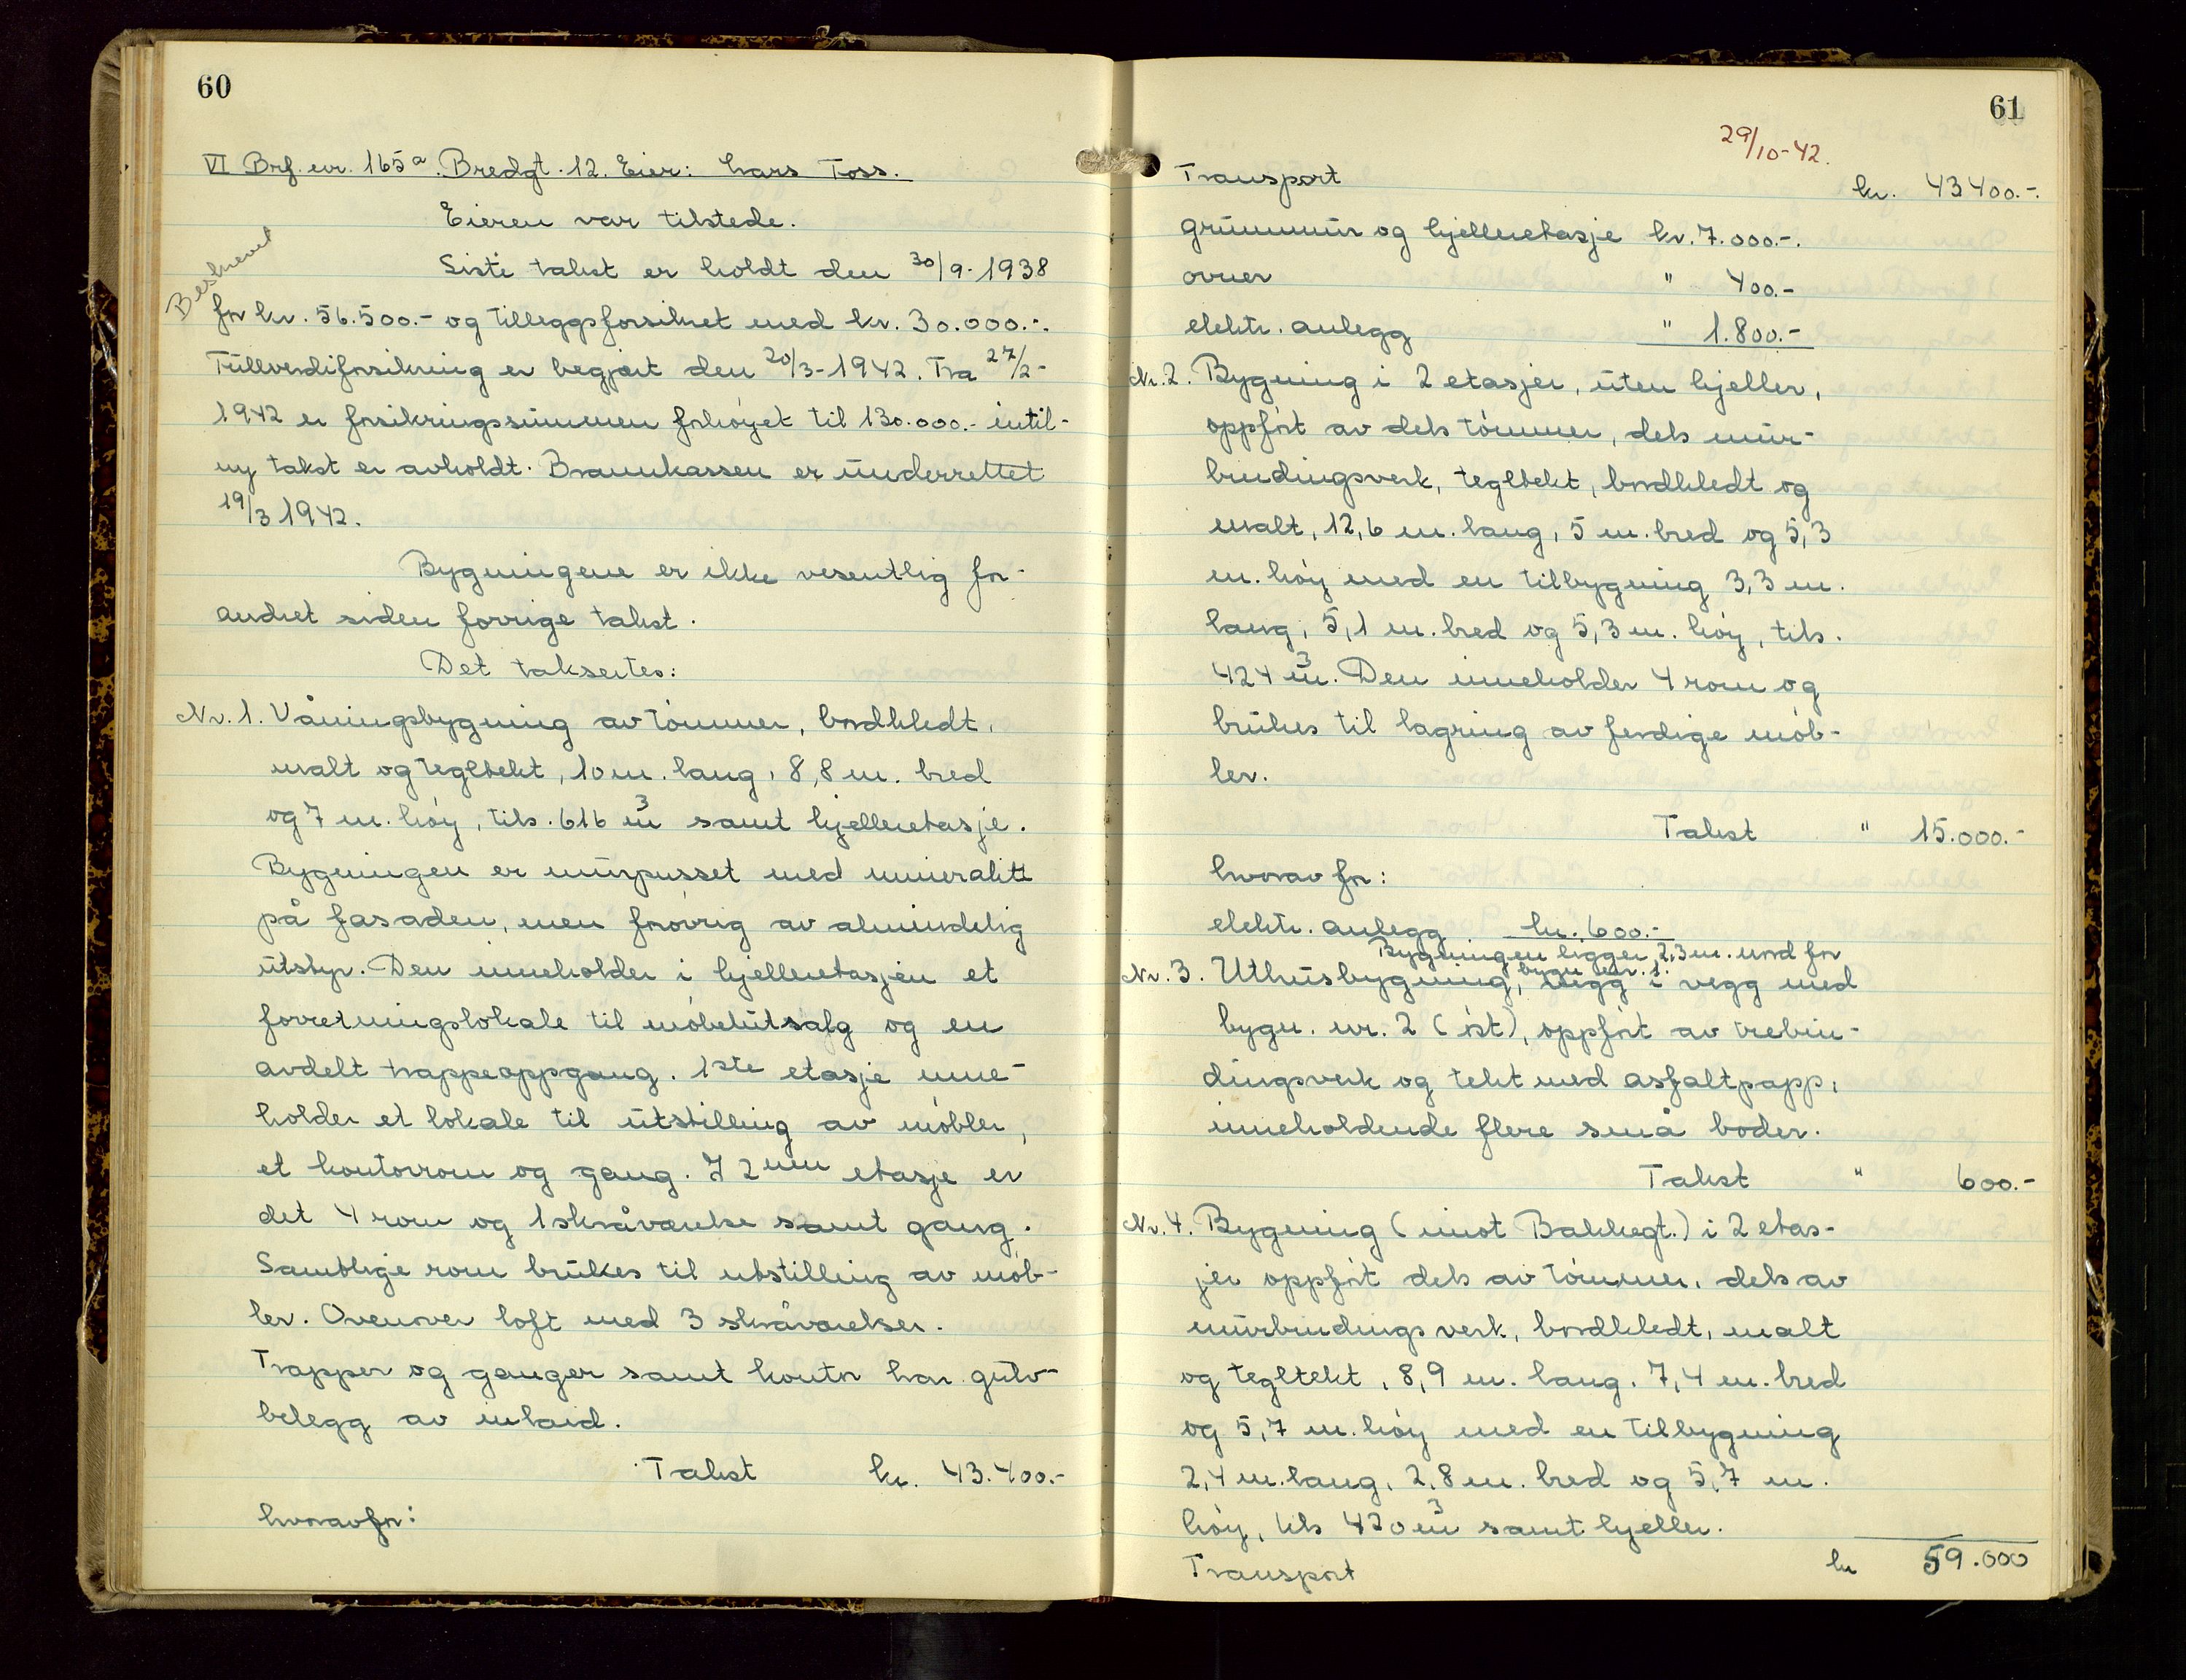 60
VI Brf. nr. 165ª. Bredgt. 12. Eier: Lars Foss.
Eieren var tilstede.
Beskrevet
Siste takst er holdt den 30/9-1938
for kr. 56.500.- og tilleggsforsikret med kr. 30.000.-.
Fullverdiforsikring er begjært den 20/3-1942. Fra 27/2-
1942 er forsikringssummen forhøyet til 130.000.- intil-
ny takst er avholdt. Brannkassen er underrettet
19/3 1942.
Bygningene er ikke vesentlig for-
andret siden forrige takst.
Det taksertes:
Nr. 1. Våningsbygning av tømmer, bordkledt,
malt og tegltekt, 10 m. lang, 8,8 m. bred
og 7 m. høy, tils. 616 m3 samt kjelleretasje.
Bygningen er murpusset med mineralitt
på fasaden, men forøvrig av almindelig
utstyr. Den inneholder i kjelleretasjen et
forretningslokale til møbelutsalg og en
avdelt trappeoppgang. 1ste etasje inne-
holder et lokale til utstilling av møbler,
et kontorrom og gang. I 2nen etasje er
det 4 rom og 1 skråværelse samt gang.
Samtlige rom brukes til utstilling av møb-
ler. Ovenover loft med 3 skråværelser.
Trapper og ganger samt kontor har gulv-
belegg av inlaid.
Takst kr. 43.400.-
hvorav for:
61
29/10-42.
Transport kr. 43400.-.
grunnmur og kjelleretasje kr. 7.000.-.
ovner " 400.-
elektr. anlegg " 1.800.-
Nr. 2. Bygning i 2 etasjer, uten kjeller,
oppført av dels tømmer, dels mur-
bindingsverk, tegltekt, bordkledt og
malt, 12,6 m. lang, 5 m. bred og 5,3
m. høy med en tilbygning 3,3 m.
lang, 5,1 m. bred og 5,3 m. høy, tils.
424 m3. Den inneholder 4 rom og
brukes til lagring av ferdige møb-
ler.
Takst " 15.000.-
hvorav for:
elektr. anlegg kr. 600.-
Bygningen ligger 2,3 m. nord for
bygn. nr. 1.
Nr. 3. Uthusbygning, vegg i vegg med
bygn. nr. 2 (øst), oppført av trebin-
dingsverk og tekt med asfaltpapp,
inneholdende flere små boder.
Takst " 600.-
Nr. 4. Bygning (imot Bakkegt.) i 2 etas-
jer oppført dels av tømmer, dels av
murbindingsverk, bordkledt, malt
og tegltekt, 8,9 m. lang, 7,4 m. bred
og 5,7 m. høy med en tilbygning
2,4 m. lang, 2,8 m. bred og 5,7 m.
høy, tils 420 m3 samt kjeller.
Transport kr 59.000